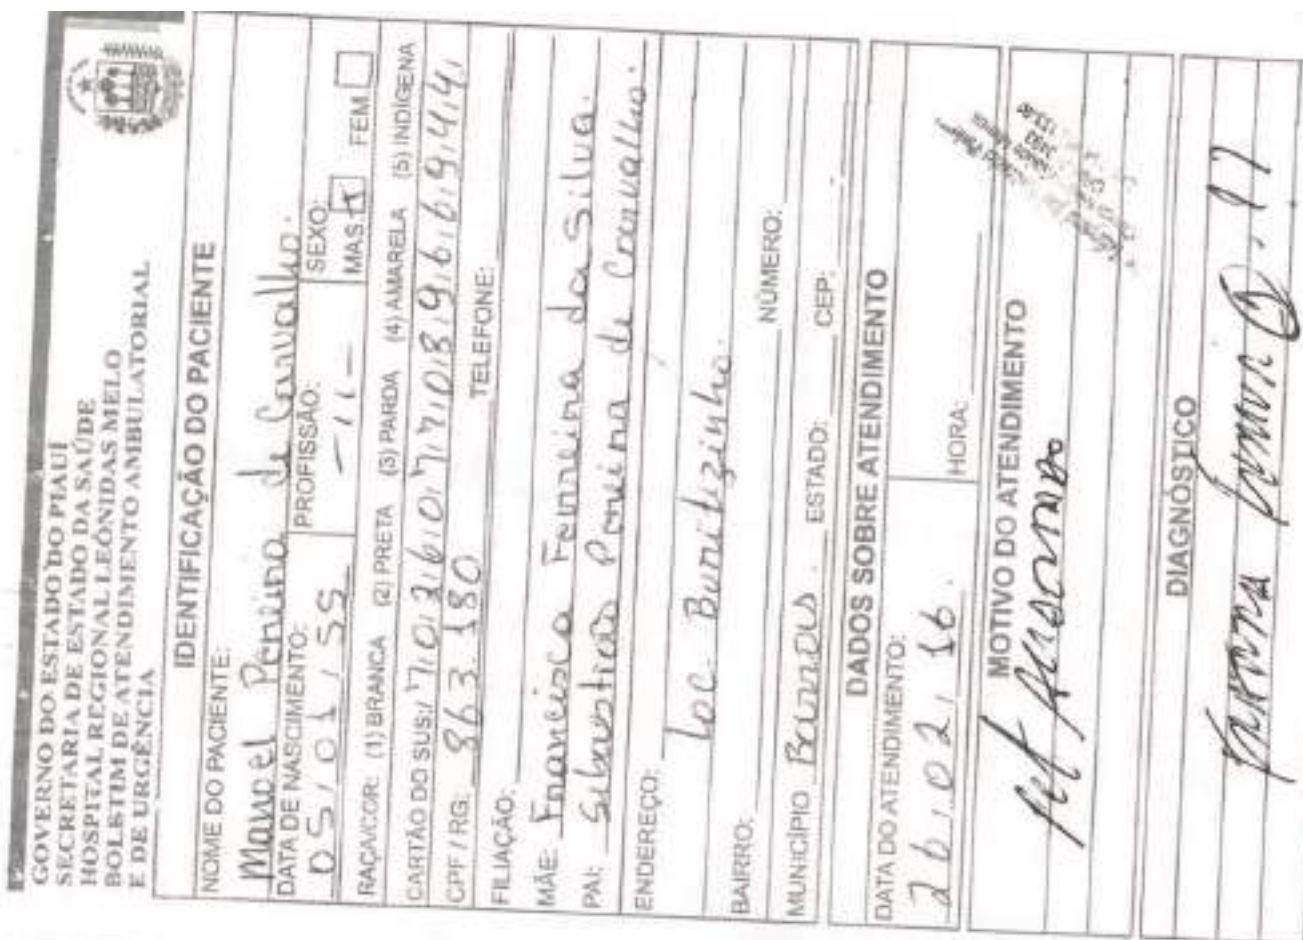 GOVERNO DO ESTADO DO PIAUÍ
SECRETARIA DE ESTADO DA SAÚDE
HOSPITAL REGIONAL LEÔNIDAS MELO
BOLETIM DE ATENDIMENTO AMBULATORIAL
E DE URGÊNCIA
IDENTIFICAÇÃO DO PACIENTE
NOME DO PACIENTE:
Manoel Pereira de Carvalho.
DATA DE NASCIMENTO: PROFISSÃO: SEXO:
05/01/55 MAS. X FEM
RAÇA/COR: (1) BRANCA (2) PRETA (3) PARDA (4) AMARELA (5) INDÍGENA
CARTÃO DO SUS:
CPF / RG: 863.180 TELEFONE:
FILIAÇÃO:
MÃE: Francisca Ferreira da Silva.
PAI: Sebastião Pereira de Carvalho.
ENDEREÇO:
Loc. Buritizinho.
BAIRRO: NÚMERO:
MUNICÍPIO Barras. ESTADO: CEP:
DADOS SOBRE ATENDIMENTO
DATA DO ATENDIMENTO: HORA:
26/02/16.
MOTIVO DO ATENDIMENTO
DIAGNÓSTICO